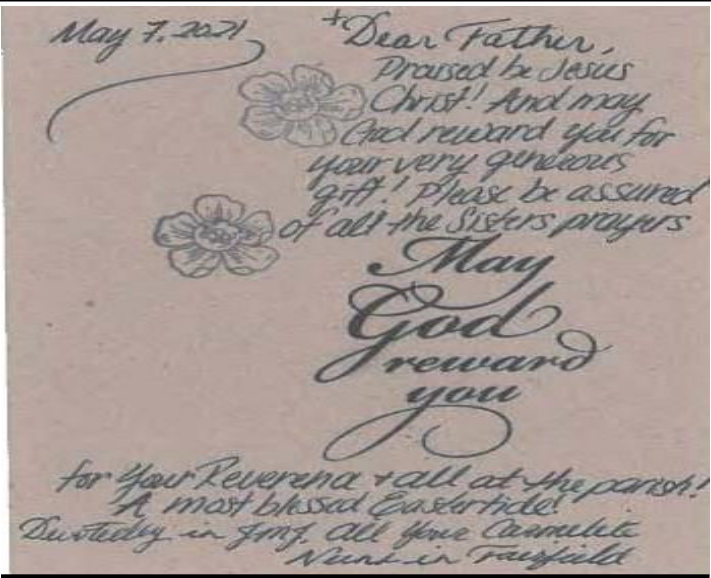 May 7, 2021
+Dear Father,
Praised be Jesus
Christ! And may
God reward you for
your very generous
gift! Please be assured
of all the Sisters prayers
May
God
reward
you
for Your Reverena + all at the parish!
A most blessed Eastertide!
Devotedly in JMJ. All Your Carmelite
Nuns in Fairfield